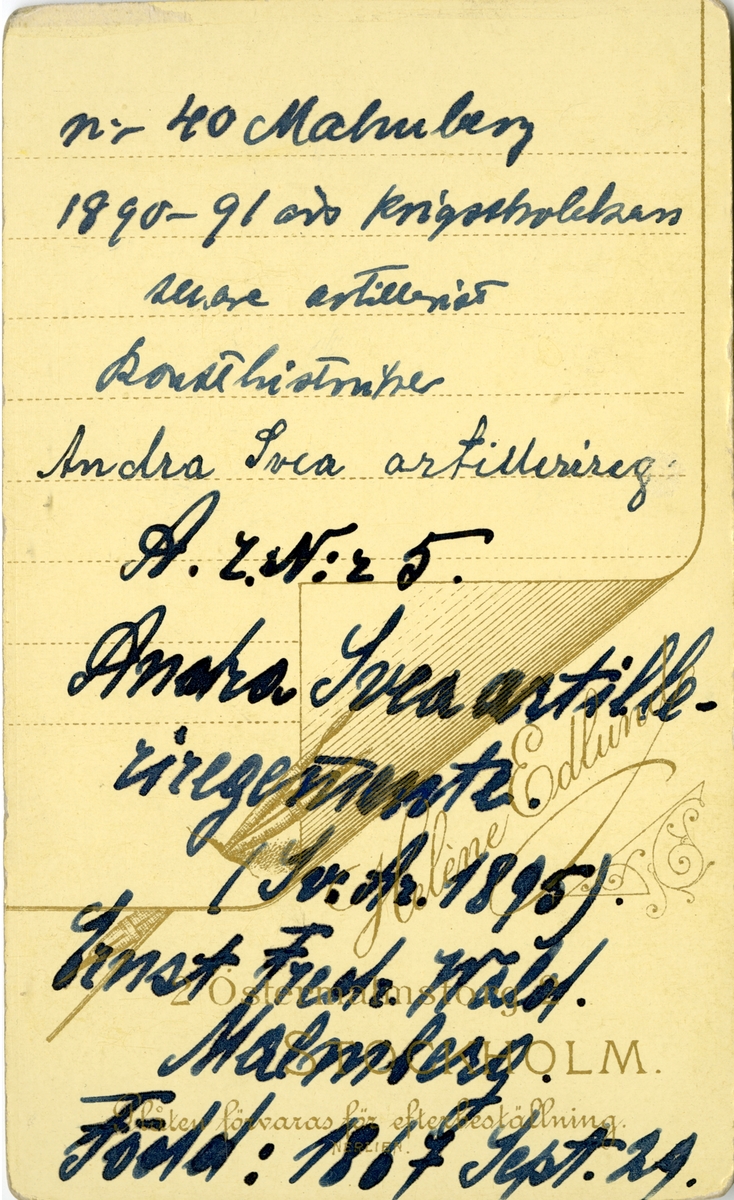 n:r 40 Malmberg
1890-91 vid krigshögskolan
senare artillerist
Konsthistoriker
Andra Svea artillerireg.
A. r. N:r 5.
Andra Svea artille-
riregemente.
(Sv. Ar. 1895).
Hélène Edlund
Ernst Fredr. Wilh.
2 Östermalmstorg 2
Malmberg.
STOCKHOLM.
Plåten förvaras för efterbeställning.
NERLIEN.
Född: 1867 Sept. 29.